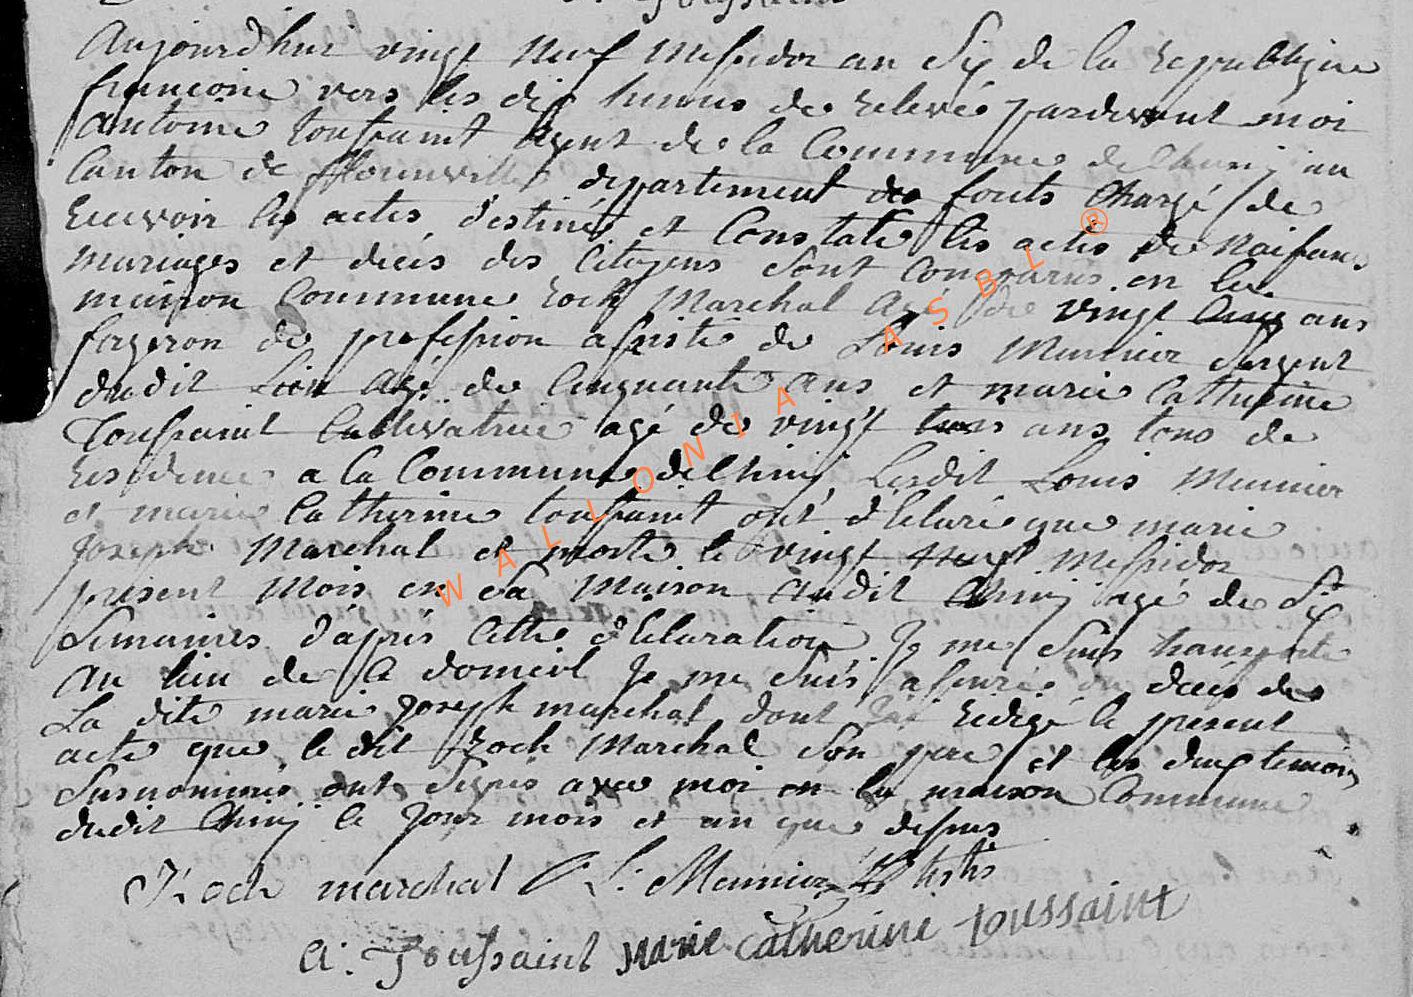 Aujourd'hui vingt neuf Messidor an Six de la Republique
francoise vers les dix heures de relevée pardevant moi
antoine toussaint agent de la Commune de Chiny au
Canton de fflorenville departement des forets Chargé de
recevoir les actes destinés et Constater les actes de Naissance
mariages et deces des Citoyens sont Comparus en la
maison Commune roch Marchal agé de vingt Cinq ans
forgeron de profession assisté de Louis Munnier Sergent
dudit Lieu agé de Cinquante ans et marie Catherine
Toussaint Cultivatrice agé de vingt trois ans tous de
residence a la Commune de Chiny Lesdit Louis Munnier
et marie Catherine toussaint ont déClaré que marie
Joseph Marchal et morte le vingt neuf Messidor
present Mois en sa Maison audit Chiny agé de Six
Semaines d'après Cette déClaration Je me Suis transporté
au lieu de Ce domicil Je me suis assurée du deces de
La dite marie Joseph marchal dont J'ai redigé le present
acte que le dit roch Marchal Son pere et les deux temoins
Surnommés ont Signés avec moi en la maison Commune
dudit Chiny le Jour mois et an que dessus
Roch marchal L: Munnier testis
A: Toussaint Marie Catherine toussaint
WALLONIA ASBL ®